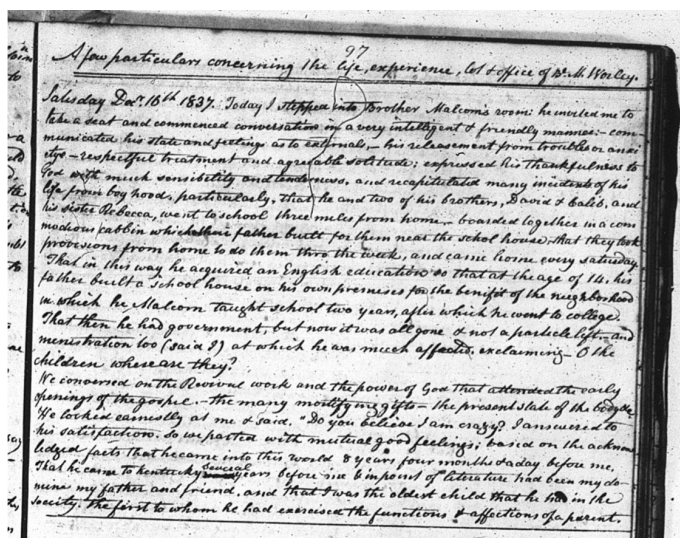 97
A few particulars concerning the life, experience, lot & office of Br. M. Worley.
Saturday Decr. 16th 1837. Today I stepped into Brother Malcom's room: he invited me to
take a seat and commenced conversation in a very intelligent & friendly manner:—com
municated his state and feelings as to externals,— his releasement from troubles or anxi
etys—respectful treatment and agreeable solitude; expressed his thankfulness to
God with much sensibility and tenderness, and recapitulated many incidents of his
life from boyhood, particularly, that he and two of his brothers, David & Caleb, and
his sister Rebecca, went to school three miles from home,— boarded together in a com
modious cabbin which their father built for them near the school house, that they took
provisions from home to do them thro the week, and came home every saturday.
That in this way he acquired an English education so that at the age of 14, his
father built a school house on his own premises for the benifit of the neighborhood
in which he Malcom taught school two years, after which he went to college.
That then he had government, but now it was all gone & not a particle left—and
menistration too (said I) at which he was much affected, exclaiming— O the
children where are they?
We conversed on the Revival work and the power of God that attended the early
openings of the gospel.—the many mortifying gifts—the present state of the
He looked earnestly at me & said, "Do you believe I am crazy? I answered to
his satisfaction. So we parted with mutual good feelings; based on the acknow
ledged facts that he came into this world 8 years four months & a day before me,
That he came to Kentucky several years before me & in point of literature had been my do
mine my father and friend, and that I was the oldest child that he had in the
society. The first to whom he had exercised the functions & affections of a parent.